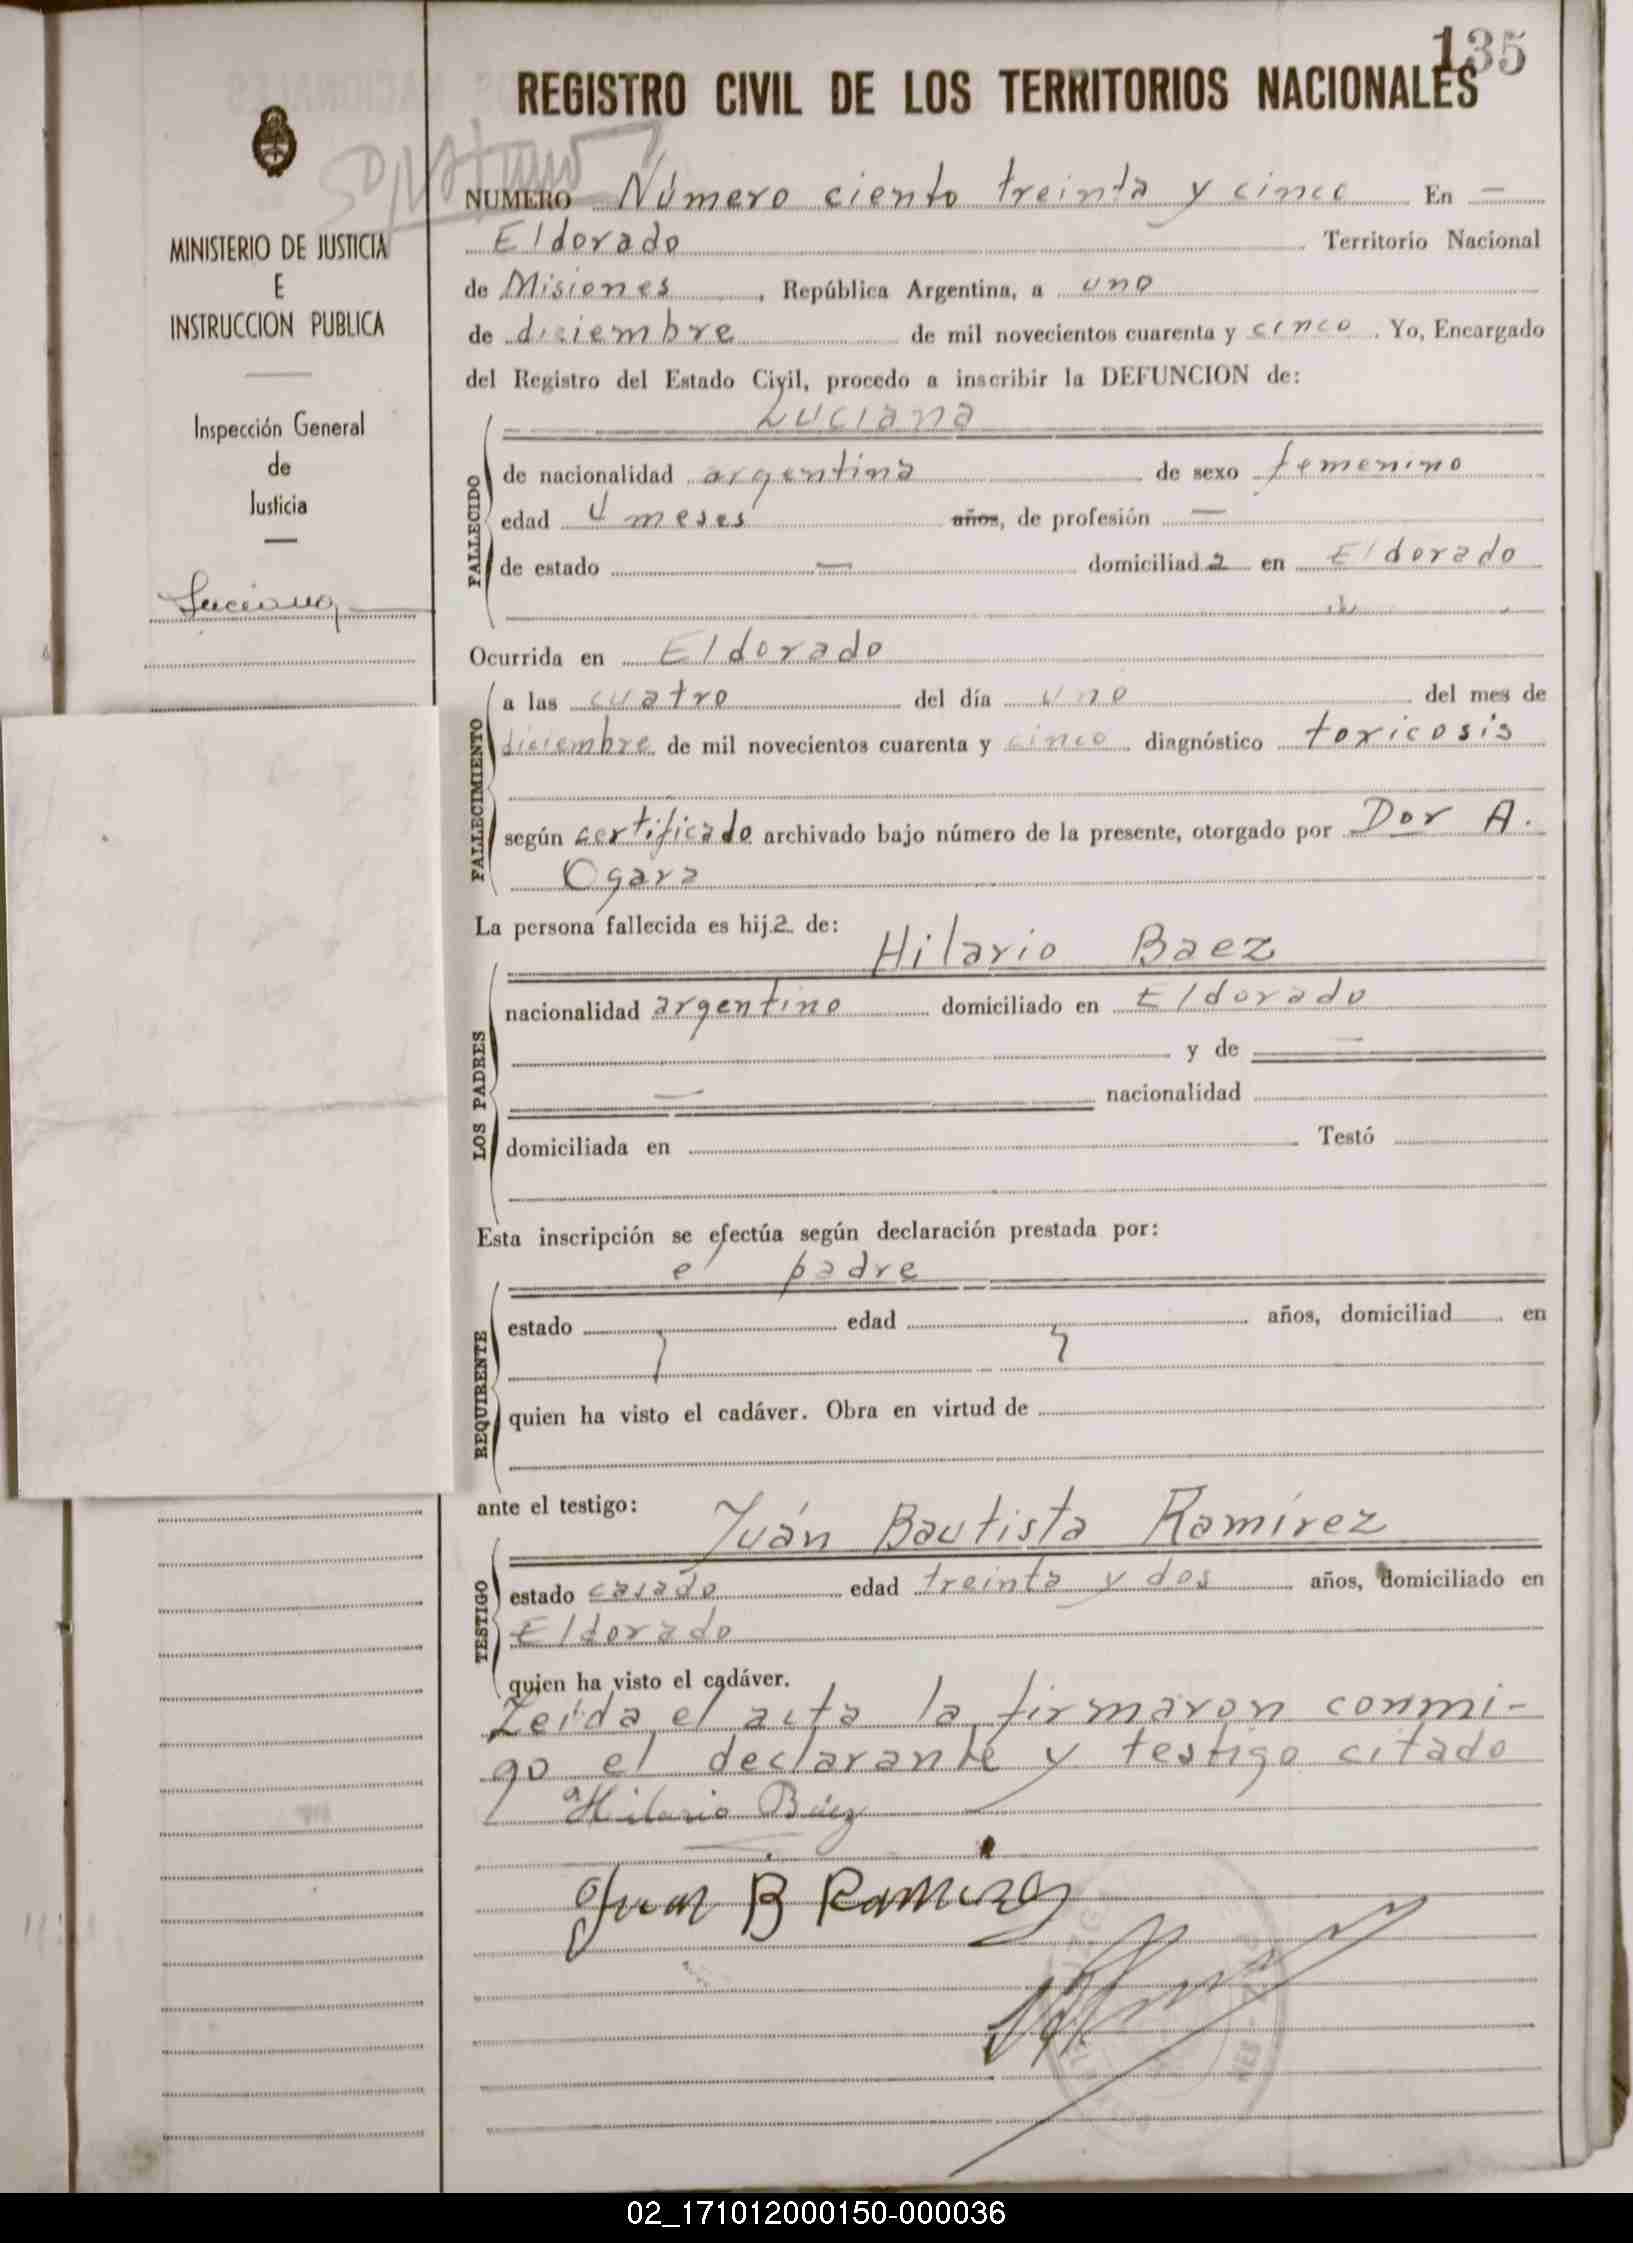 135
REGISTRO CIVIL DE LOS TERRITORIOS NACIONALES
MINISTERIO DE JUSTICIA
E
INSTRUCCION PUBLICA
Inspección General
de
Justicia
Luciana
NUMERO Número ciento treinta y cinco En —
Eldorado Territorio Nacional
de Misiones, República Argentina, a uno
de diciembre de mil novecientos cuarenta y cinco. Yo, Encargado
del Registro del Estado Civil, procedo a inscribir la DEFUNCION de:
Luciana
FALLECIDO
de nacionalidad argentina de sexo femenino
edad 4 meses años, de profesión —
de estado — domiciliada en Eldorado
Ocurrida en Eldorado
FALLECIMIENTO
a las cuatro del día uno del mes de
diciembre de mil novecientos cuarenta y cinco diagnóstico toxicosis
según certificado archivado bajo número de la presente, otorgado por Dor A.
Ogara
La persona fallecida es hija de:
Hilario Baez
LOS PADRES
nacionalidad argentino domiciliado en Eldorado
y de —
— nacionalidad
domiciliada en Testó
Esta inscripción se efectúa según declaración prestada por:
el padre
REQUIRENTE
estado edad años, domiciliad en
quien ha visto el cadáver. Obra en virtud de
ante el testigo:
Juán Bautista Ramírez
TESTIGO
estado casado edad treinta y dos años, domiciliado en
Eldorado
quien ha visto el cadáver.
Leída el acta la firmaron conmi-
go el declarante y testigo citado
Hilario Báez
Juan B Ramirez
02_171012000150-000036